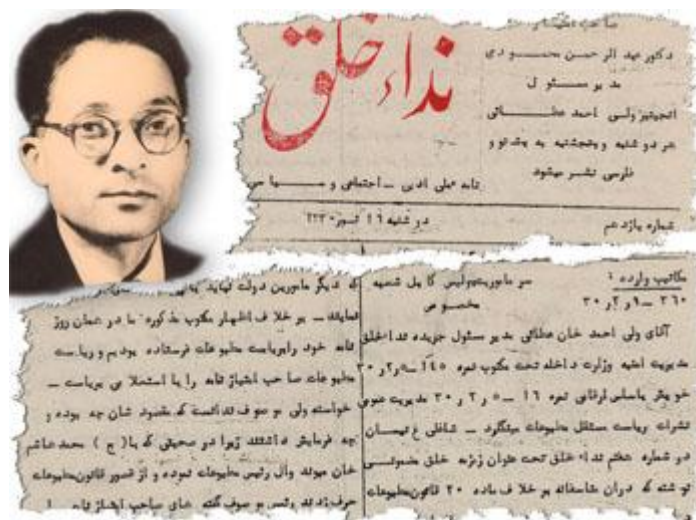 صاحب امتیاز
دکتور عبد الرحمن محمودی
مدیر مسئول
انجنیر ولی احمد عطائی
هر دوشنبه و پنجشنبه به پشتو و
فارسی نشر میشود
نداء خلق
نامه ملی ادبی ـ اجتماعی و سیاسی
شماره یازدهم
دوشنبه ١٦ ثور ١٣٣٠
مکاتیب وارده :
٢٦٠ ـ ٩ ر ٢ ر ٣٠
سر ماموریت پولیس کابل شعبه
مخصوص
آقای ولی احمد خان عطائی مدیر مسئول جریده نداء خلق
مدیریت امنیه وزارت داخله تحت مکتوب نمره ١٤٥ ـ ٥ ر ٢ ر ٣٠
خویش باساس ارقامی نمره ١٦ ـ ٥ ر ٢ ر ٣٠ مدیریت عمومی
نشرات ریاست مستقل مطبوعات مینگارد ـ
در شماره هفتم نداء خلق تحت عنوان
نوشته که دران متاسفانه بر خلاف ماده ٢٠ قانون مطبوعات
که دیگر مامورین دولت نباید
نمایند ـ بر خلاف اظهار مکتوب مذکوره ما در همان روز
نامه خود را بریاست مطبوعات فرستاده بودیم و ریاست
مطبوعات صاحب امتیاز نامه را با استعلامی بریاست ـ
خواسته ولی موصوف ندانست که مقصود شان چه بوده و
چه فرمایش داشتند زیرا در صحبتی که با ( ج ) محمد هاشم
خان میوند وال رئیس مطبوعات نموده و از قصور قانون مطبوعات
حرف زدند رئیس موصوف گفته های صاحب امتیاز نامه را